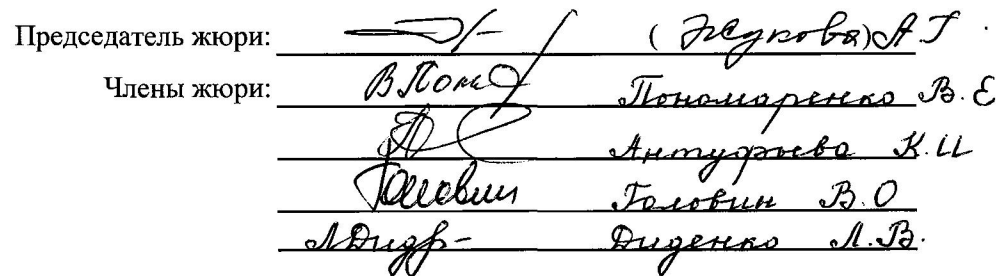 Председатель жюри: (Жукова) А Г
Члены жюри: В Поно Пономаренко В. Е
Антуфьева К. И
Головин Головин В. О
ЛДид Диденко Л. В.